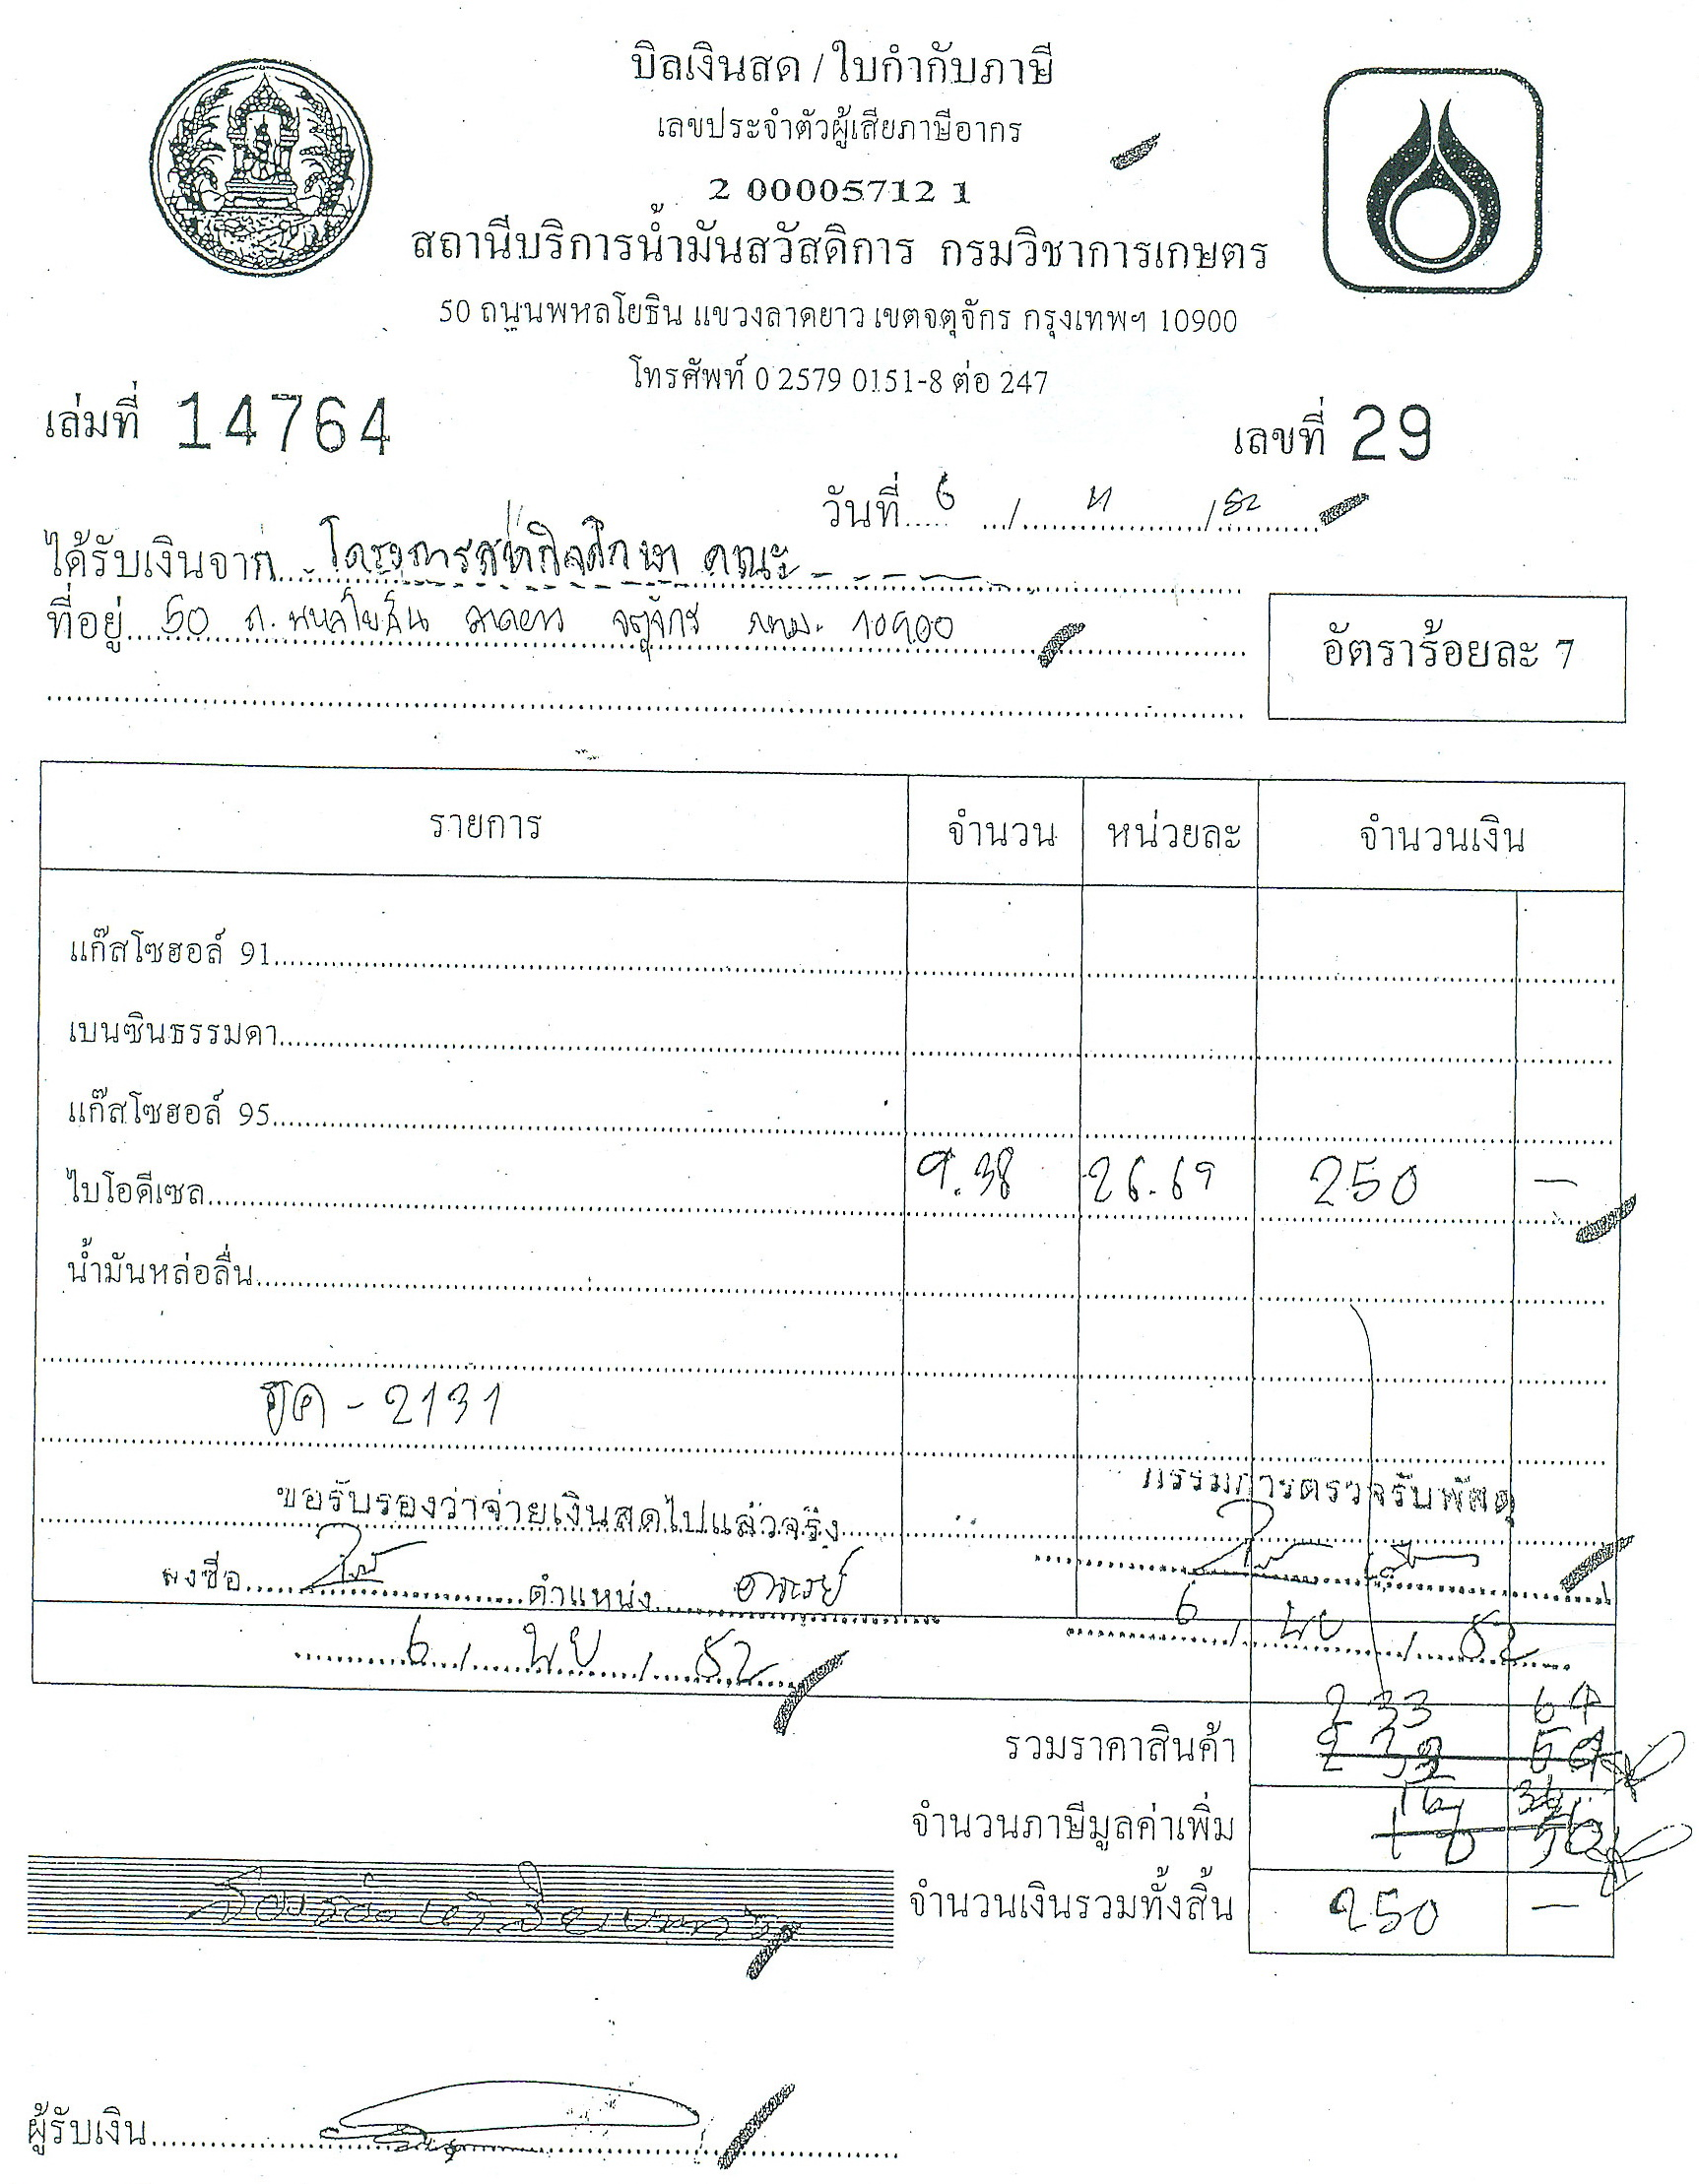 บิลเงินสด / ใบกำกับภาษี
เลขประจำตัวผู้เสียภาษีอากร
2 00005712 1
สถานีบริการน้ำมันสวัสดิการ กรมวิชาการเกษตร
50 ถนนพหลโยธิน แขวงลาดยาว เขตจตุจักร กรุงเทพฯ 10900
โทรศัพท์ 0 2579 0151-8 ต่อ 247
เล่มที่ 14764
เลขที่ 29
วันที่ 6 / 11 / 52
ได้รับเงินจาก โครงการสหกิจศึกษา คณะ
ที่อยู่ 50 ถ. พหลโยธิน ลาดยาว จตุจักร กทม. 10900
อัตราร้อยละ 7
รายการ จำนวน หน่วยละ จำนวนเงิน
แก๊สโซฮอล์ 91
เบนซินธรรมดา
แก๊สโซฮอล์ 95
ไบโอดีเซล 9.38 26.69 250 —
น้ำมันหล่อลื่น
ฮค - 2131
ขอรับรองว่าจ่ายเงินสดไปแล้วจริง
กรรมการตรวจรับพัสดุ
ลงชื่อ ตำแหน่ง อาจารย์
6 / พย / 52
6 / พย / 52
233 64
รวมราคาสินค้า
16 36
จำนวนภาษีมูลค่าเพิ่ม
จำนวนเงินรวมทั้งสิ้น 250 —
ผู้รับเงิน